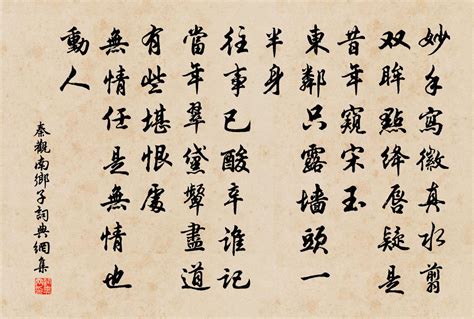 妙手寫徽真水翦
双眸點绛唇疑是
昔年窺宋玉
東鄰只露墻頭一
半身
往事已酸辛誰記
當年翠黛顰盡道
有些堪恨處
無情任是無情也
動人
秦觀南鄉子詞典網集